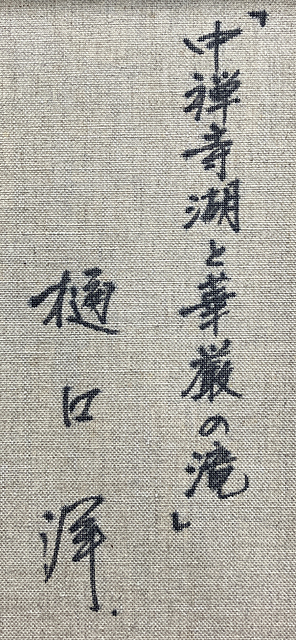 「中禅寺湖と華厳の滝」
樋口洋